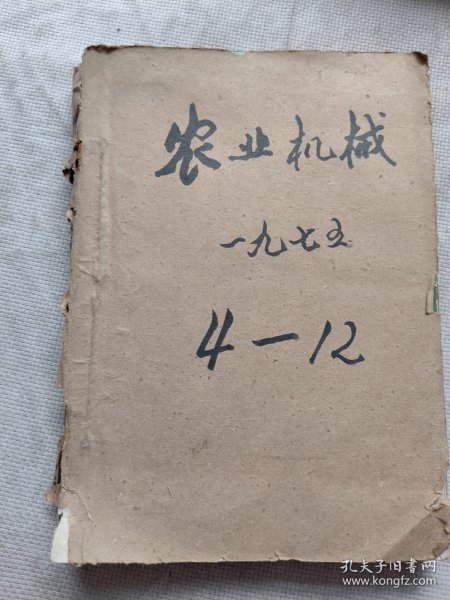 农业机械
一九七五
4—12
孔夫子旧书网
www.kongfz.com